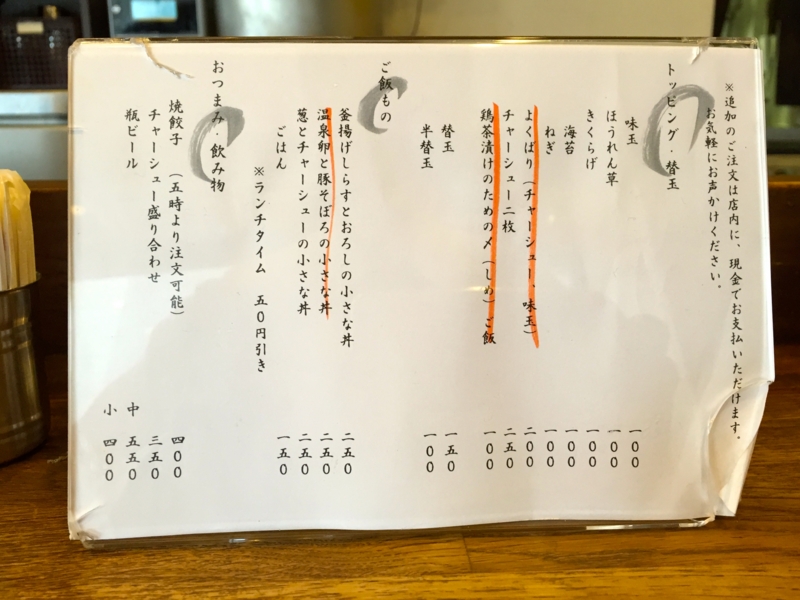 ※追加のご注文は店内に、現金でお支払いただけます。
お気軽にお声かけください。
トッピング・替玉
味玉 一00
ほうれん草 一00
きくらげ 一00
海苔 一00
ねぎ 一00
よくばり（チャーシュー、味玉） 二00
チャーシュー二枚 二五0
鶏茶漬けのための〆（しめ）ご飯 一00
替玉 一五0
半替玉 一00
ご飯もの
釜揚げしらすとおろしの小さな丼 二五0
温泉卵と豚そぼろの小さな丼 二五0
葱とチャーシューの小さな丼 二五0
ごはん 一五0
※ランチタイム 五0円引き
おつまみ・飲み物
焼餃子（五時より注文可能） 四00
チャーシュー盛り合わせ 三五0
瓶ビール 中 五五0
小 四00